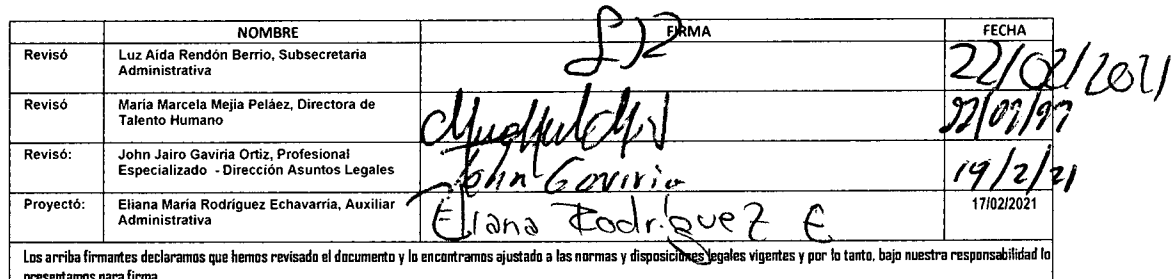 NOMBRE FIRMA FECHA
Revisó Luz Aída Rendón Berrio, Subsecretaria 22/02/2021
Administrativa
Revisó María Marcela Mejía Peláez, Directora de
Talento Humano
Revisó: John Jairo Gaviria Ortiz, Profesional John Gaviria 19/2/21
Especializado - Dirección Asuntos Legales
Proyectó: Eliana María Rodríguez Echavarría, Auxiliar Eliana Rodríguez E 17/02/2021
Administrativa
Los arriba firmantes declaramos que hemos revisado el documento y lo encontramos ajustado a las normas y disposiciones legales vigentes y por lo tanto, bajo nuestra responsabilidad lo
presentamos para firma.